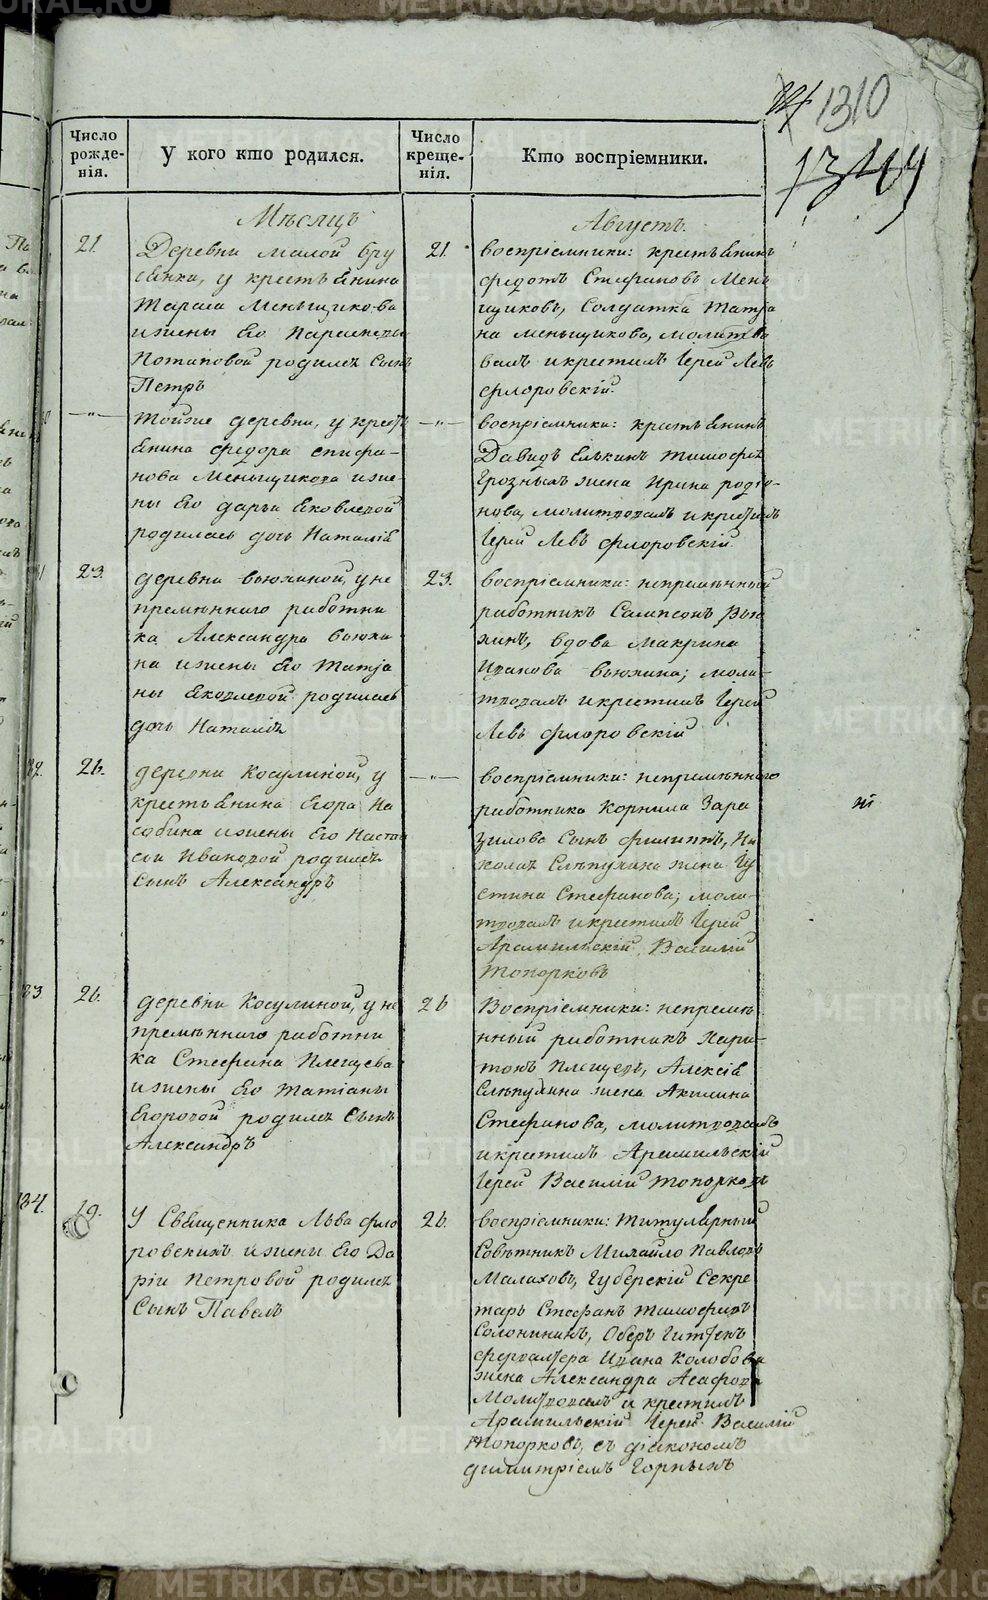 1310
1349
Число рожде-нія.
У кого кто родился.
Число креще-нія.
Кто воспріемники.
Мѣсяцъ
Августъ.
21.
Деревни малой бру
сянки, у крестьянина
Тараса Меньщикова
ижены Его Параскевы
Потаповой родился Сынъ
Петръ
21.
воспріемники: крестьянинъ
федотъ Стефановъ Мень
щиковъ, Солдатка Татья
на меньщикова, молитво
валъ икрестилъ Іерей Левъ
флоровскій.
—"—
тойже деревни, у крест
янина федора епифа-
нова Меньщикова иже
ны Его дарьи Яковлевой
родилась дочь Наталія
—"—
воспріемники: крестьянинъ
Давидъ Елькинъ тимофея
Грозныхъ жена Ирина родіо-
нова, молитвовалъ икрестилъ
Іерей Левъ флоровскій.
23.
деревни вьюхиной, уне
премѣннаго работни
ка Александра вьюхи
на ижены Его Татья
ны Яковлевой родилась
дочь Наталія
23.
воспріемники: непремѣнный
работникъ Сампсонъ Вью
хинъ, вдова Макрина
Иванова вьюхина; моли-
твовалъ икрестилъ Іерей
Левъ флоровскій
82.
26.
деревни Косулиной, у
крестьянина Егора На
собина ижены Его Наста
сьи Ивановой родился
Сынъ Александръ
—"—
воспріемники: непремѣннаго
работника Корнила Зара
зилова Сынъ филиппъ, Ни
колая Слѣпухина жена Іу
стина Стефанова; моли-
твовалъ икрестилъ Іерей
Арамильскій Василій
Топорковъ
83.
26.
деревни Косулиной, у не
премѣннаго работни
ка Стефана Плещева
ижены Его Татіаны
Егоровой родился Сынъ
Александръ
26
Воспріемники: непремѣ
нный работникъ Хари-
тонъ Плещевъ, Алексія
Слѣпухина жена Акилина
Стефанова, молитвовалъ
икрестилъ Арамильскій
Іерей Василій Топорковъ
84.
19.
У Священника Льва фло
ровскихъ ижены Его Да
ріи Петровой родился
Сынъ Павелъ
26.
воспріемники: Титулярный
Совѣтникъ Михайло Павловъ
Малаховъ, Губерскій Секре
тарь Стефанъ Тимофеевъ
Солонининъ, Оберъ Гиттен
фервалтера Ивана Колобова
жена Александра Асафова
Молитвовалъ и крестилъ
Арамильскій Іерей Василій
Топорковъ, съ діакономъ
димитріемъ Горныхъ
METRIKI.GASO-URAL.RU